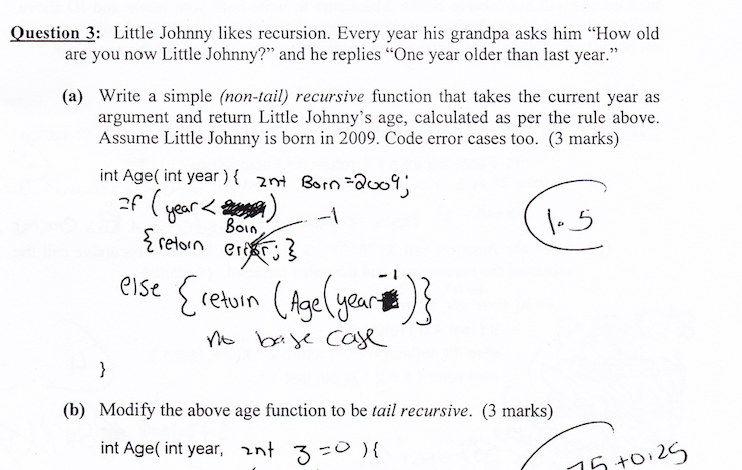 Question 3: Little Johnny likes recursion. Every year his grandpa asks him “How old
are you now Little Johnny?” and he replies “One year older than last year.”
(a) Write a simple (non-tail) recursive function that takes the current year as
argument and return Little Johnny’s age, calculated as per the rule above.
Assume Little Johnny is born in 2009. Code error cases too. (3 marks)
int Age( int year ) { int Born = 2009;
if ( year < )
Born
-1
{ return error; }
1.5
else { return ( Age(year -1 ) }
no base case
}
(b) Modify the above age function to be tail recursive. (3 marks)
int Age( int year, int 3 = 0 ) {
75 + 0.25